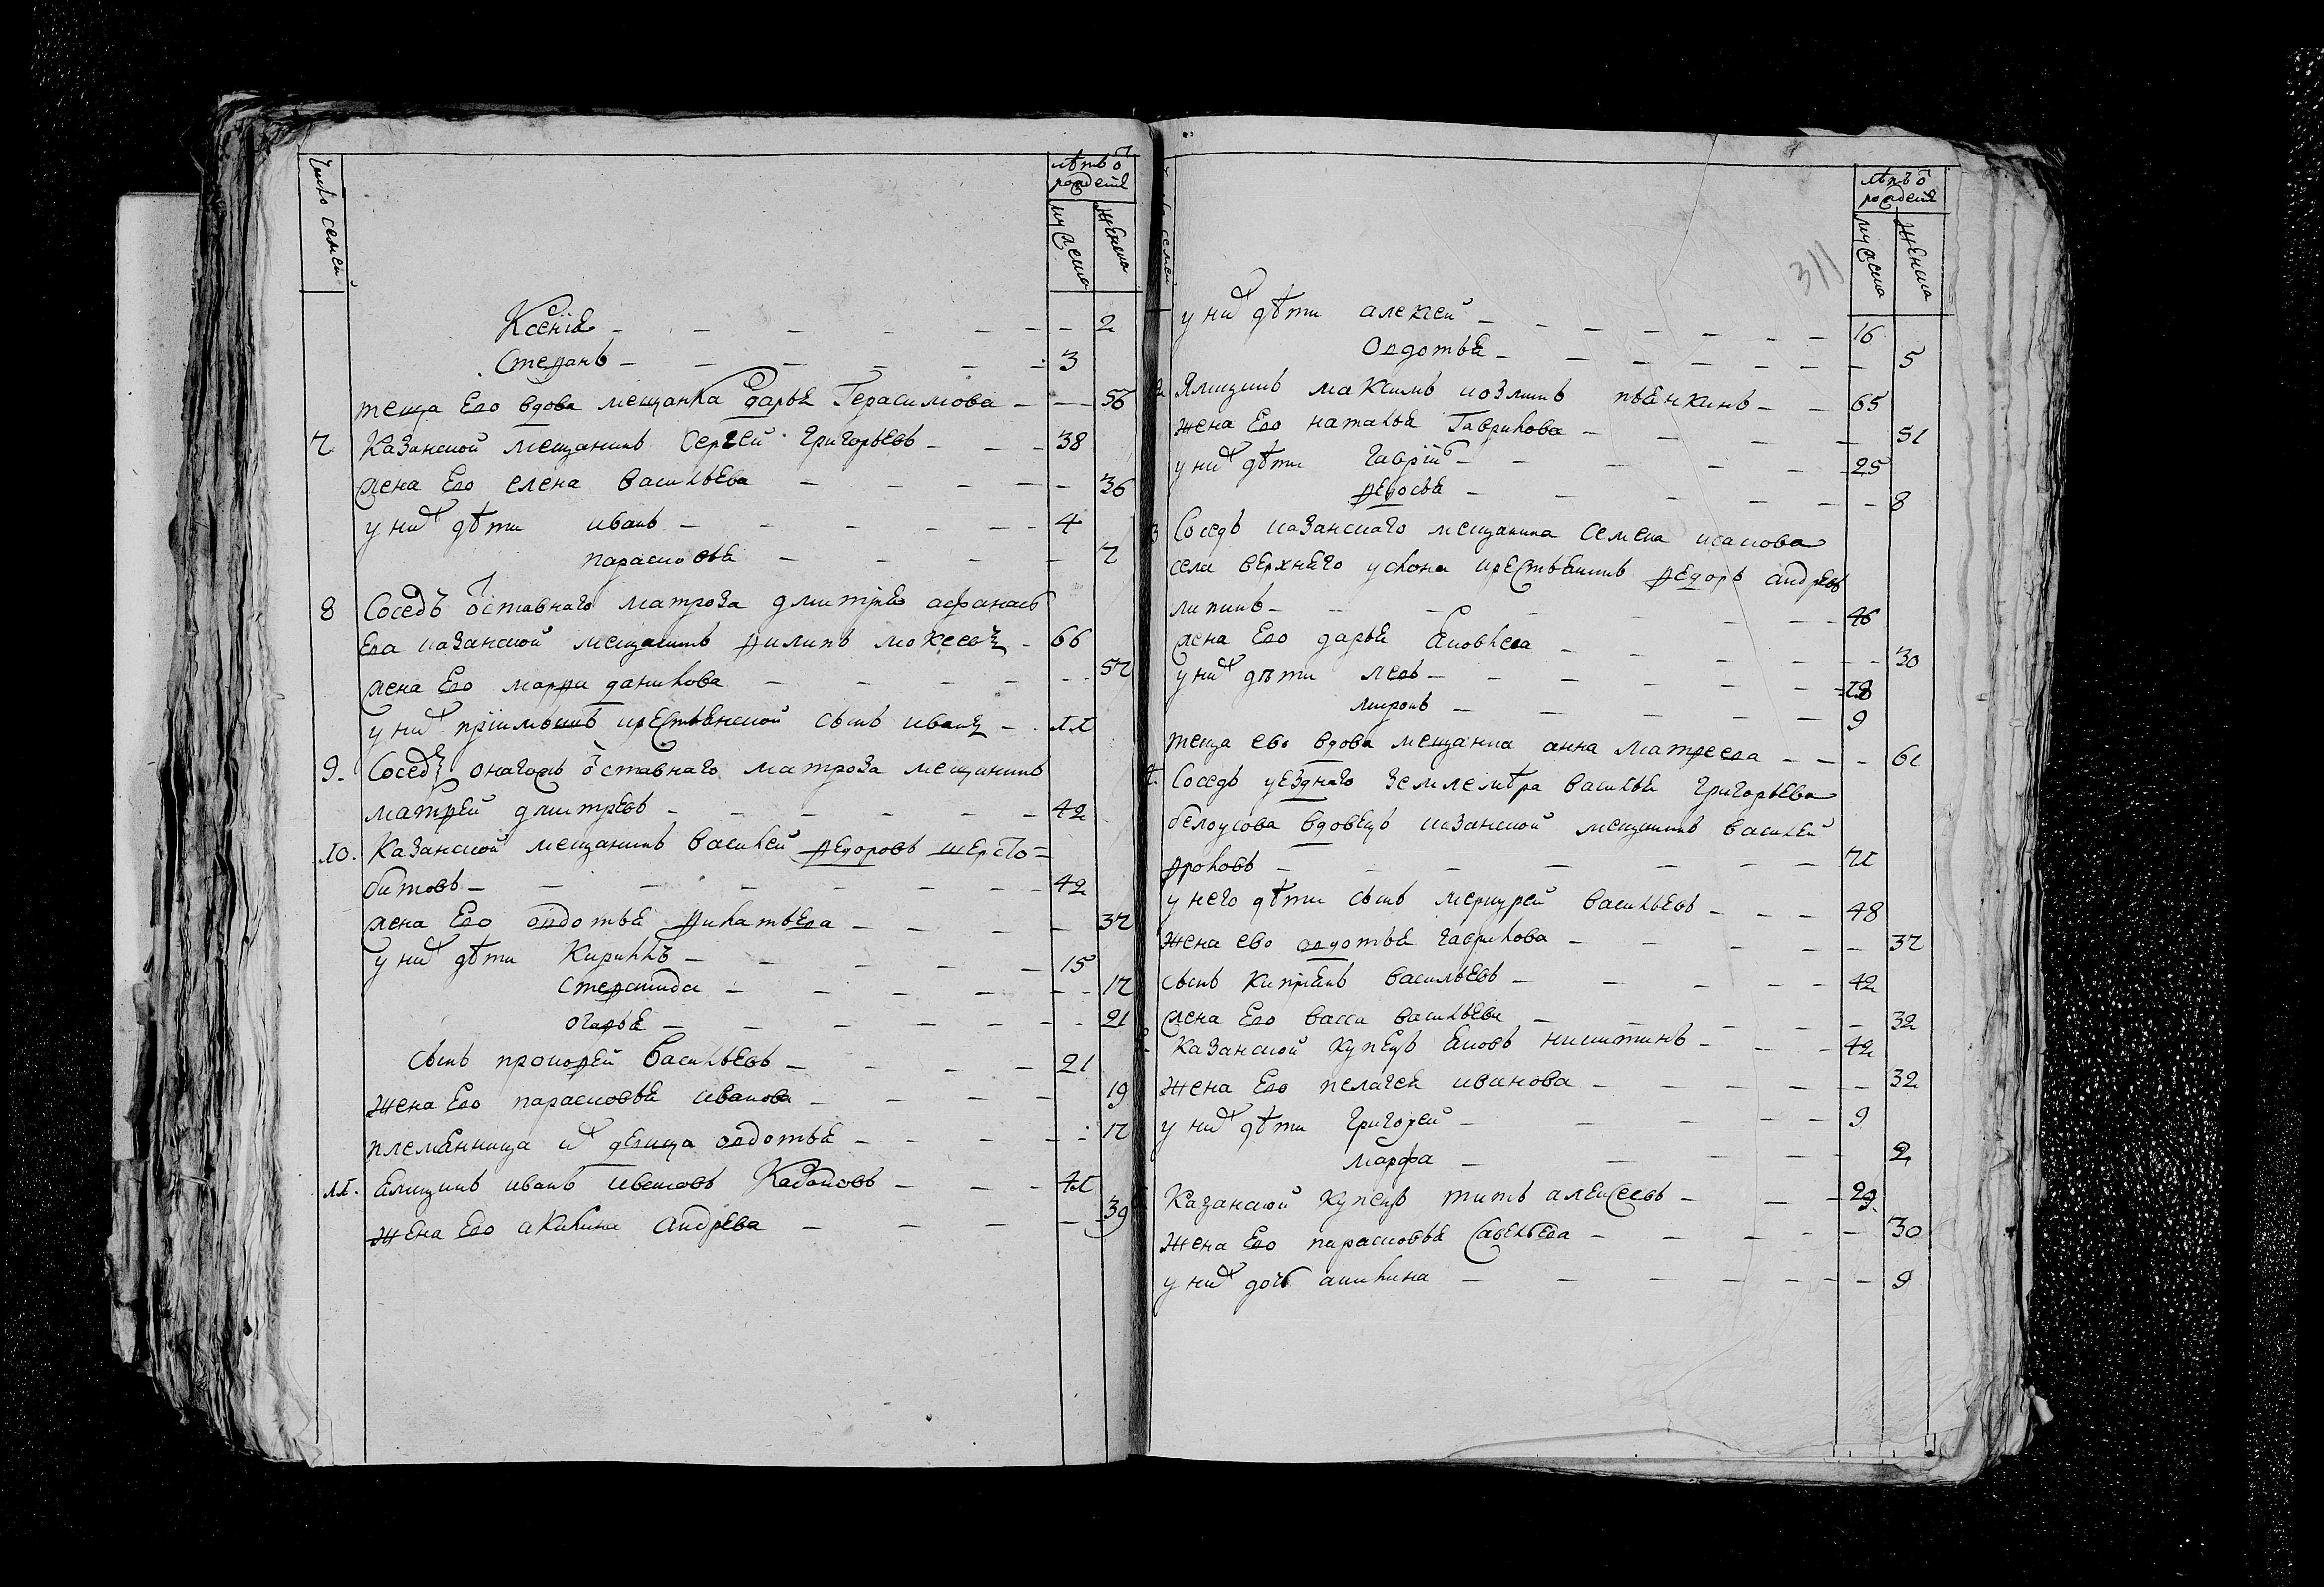 Число семей
лѣтъ ѿ
рождения
мужеска
женска
Ксения 2
Стефанъ 3
теща Его вдова мещанка дарья Герасимова 56
7 Казанской мещанинъ Сергей Григорьевъ 38
жена Его елена васильева 36
у них дѣти иванъ 4
парасковья 7
8 Соседъ ѿставнаго матроза дмитрея афанась
ева казанской мещанинъ филипъ мокеевъ 66
жена Его марфа данилова 57
у них приимышъ крестьянской сынъ иванъ 11
9. Соседъ онагожъ ѿставнаго матроза мещанинъ
матфей дмитревъ 42
10. Казанской мещанинъ василей федоровъ шерсто=
битовъ 42
жена Его овдотья филатьева 37
у них дѣти Кирилъ 15
Стефанида 17
огафья 21
сынъ прокофей васильевъ 21
жена Его парасковья иванова 19
племянница их девица овдотья 17
11. ямщикъ иванъ ивановъ 41
жена Его акилина андрева 39
семей
лѣтъ ѿ
рождения
мужеска
женска
311
у них дѣти алексей 16
овдотья 5
Ямщикъ максимъ козминъ пьянкинъ 65
жена Его наталья Гаврилова 51
у них дѣти гаврило 25
федосья 8
3 Соседъ казанскаго мещанина семена исакова
села верхняго услона крестьянинъ федоръ андревъ
липинъ 46
жена Его дарья яковлева 30
у них дѣти левъ 18
миронъ 9
теща ево вдова мещанка анна матфеева 61
Соседъ уезднаго землемѣра василья григорьева
белоусова вдовецъ казанской мещанинъ василей
фроловъ 71
у него дѣти сынъ меркурей васильевъ 48
жена ево овдотья гаврилова 37
сынъ киприянъ васильевъ 42
жена Его васса васильева 32
Казанской купецъ яковъ никитинъ 42
жена Его пелагея иванова 32
у них дѣти григорей 9
марфа 2
Казанской купецъ титъ алексеевъ 29
жена Его парасковья савельева 30
у них дочь акилина 9